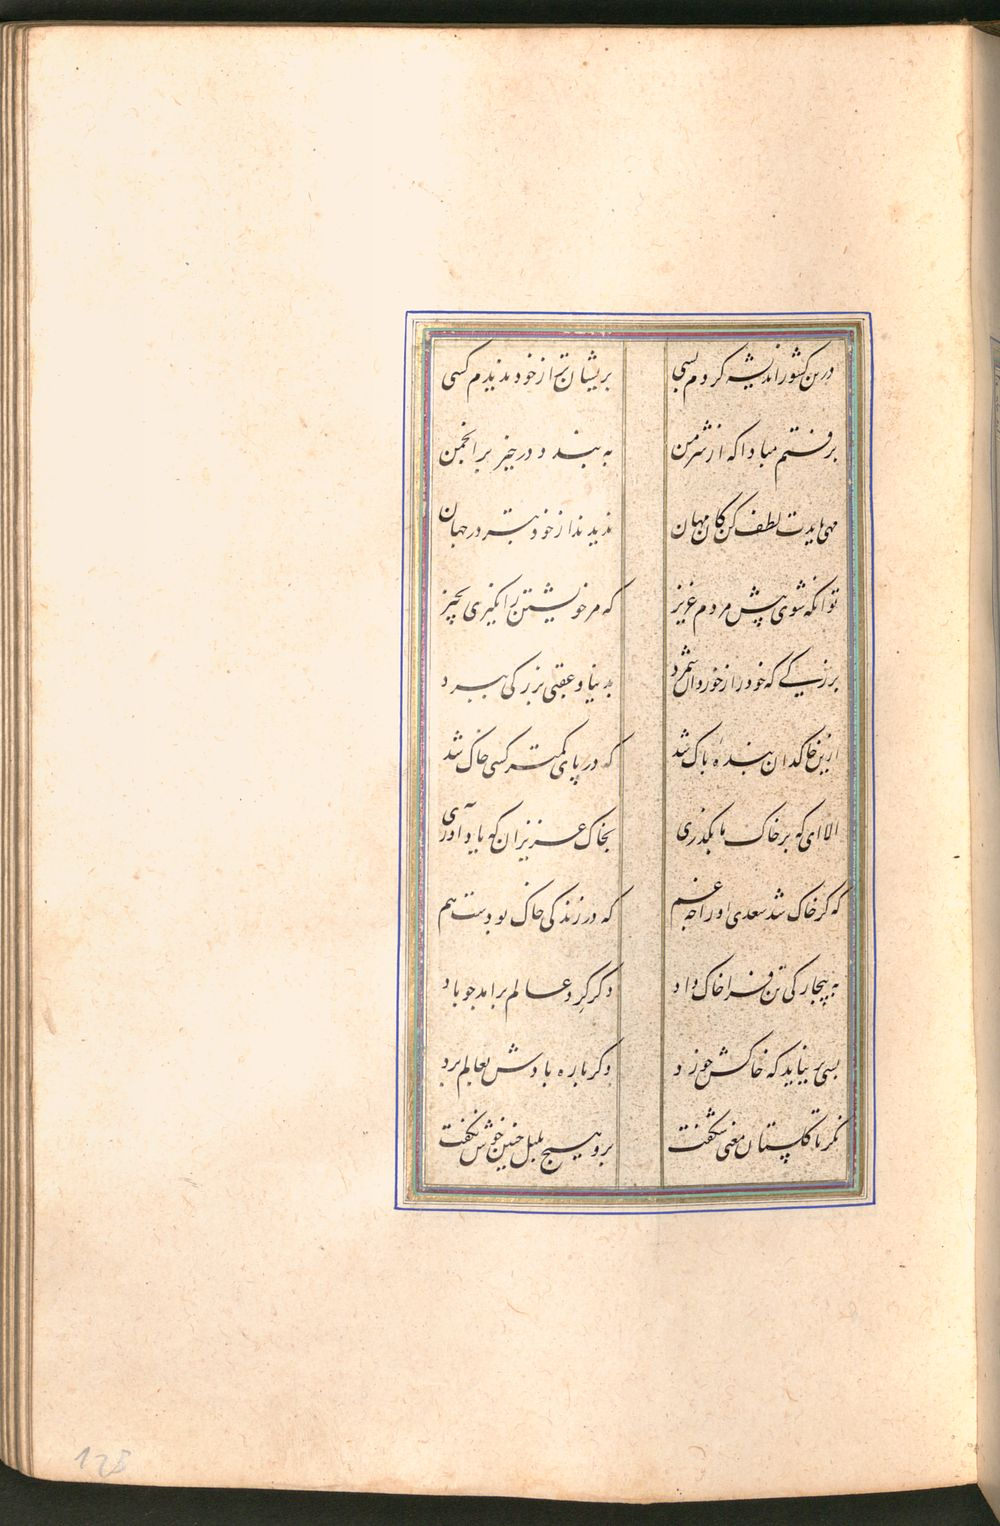 درین کشور اندیشه کردم بسی
پریشان‌تر از خود ندیدم کسی
برفتم مبادا که از شر من
به بندد در خیز بر انجمن
مهی بایدت لطف کن کان مهان
ندیدند از خود بتر در جهان
تو آنگه شوی پیش مردم عزیز
که مر خویشتن را نگیری بچیز
بزرگی که خود را ز خوردان شمرد
بدنیا و عقبی بزرگی ببرد
ازین خاکدان بنده پاک شد
که در پای کمتر کسی خاک شد
الا ای که بر خاک ما بگذری
بخاک عزیزان که یاد آوری
که گر خاک شد سعدی او را چه غم
که در زندگی خاک بودست هم
به بیچارگی تن فرا خاک داد
دگر گرد عالم برآمد چو باد
بسی برنیاید که خاکش خورد
دگر باره بادش بعالم برد
نگر تا گلستان معنی شگفت
برو هیچ بلبل چنین خوش نگفت
128